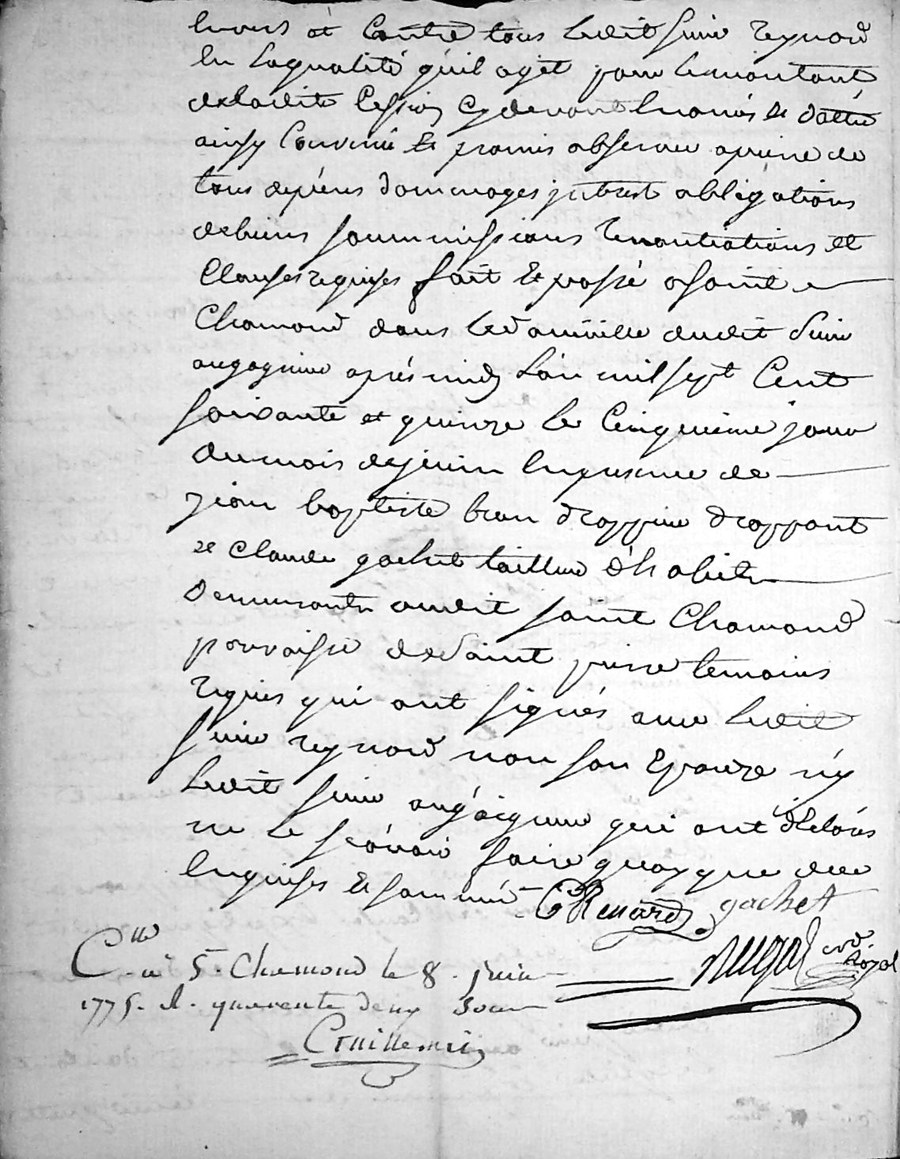 Envers et Contre tous Ledit sieur Reynard
En Laqualité quil agît pour Lemontant
deladite Cession Cydevant Enoncés &
ainsy Convenu Et promis observer apeine de
tous depens dommages jnterest obligations
debiens soummissions renontiations et
Clauses requises fait Et passé asaint
Chamond dans Le domicille dudit sieur
aprés midy Lan mil sept Cent
soixante et quinze Le Cinquieme jour
dumois dejuin Enpresence de
jean baptiste drappant
& Claude gachet tailleur d'habits
Demeurants audit saint Chamond
parroisse de Saint pierre temoins
requis qui ont signés avec Ledit
sieur reynard non son Epouze n'y
Ledit sieur qui ont déclarés
ne Le sçavoir faire quoy que de ce
Enquises Et sommés CRenard gachet
royal
C.lle a S. Chamond le 8. juin
1775. R. quarente deux Sous